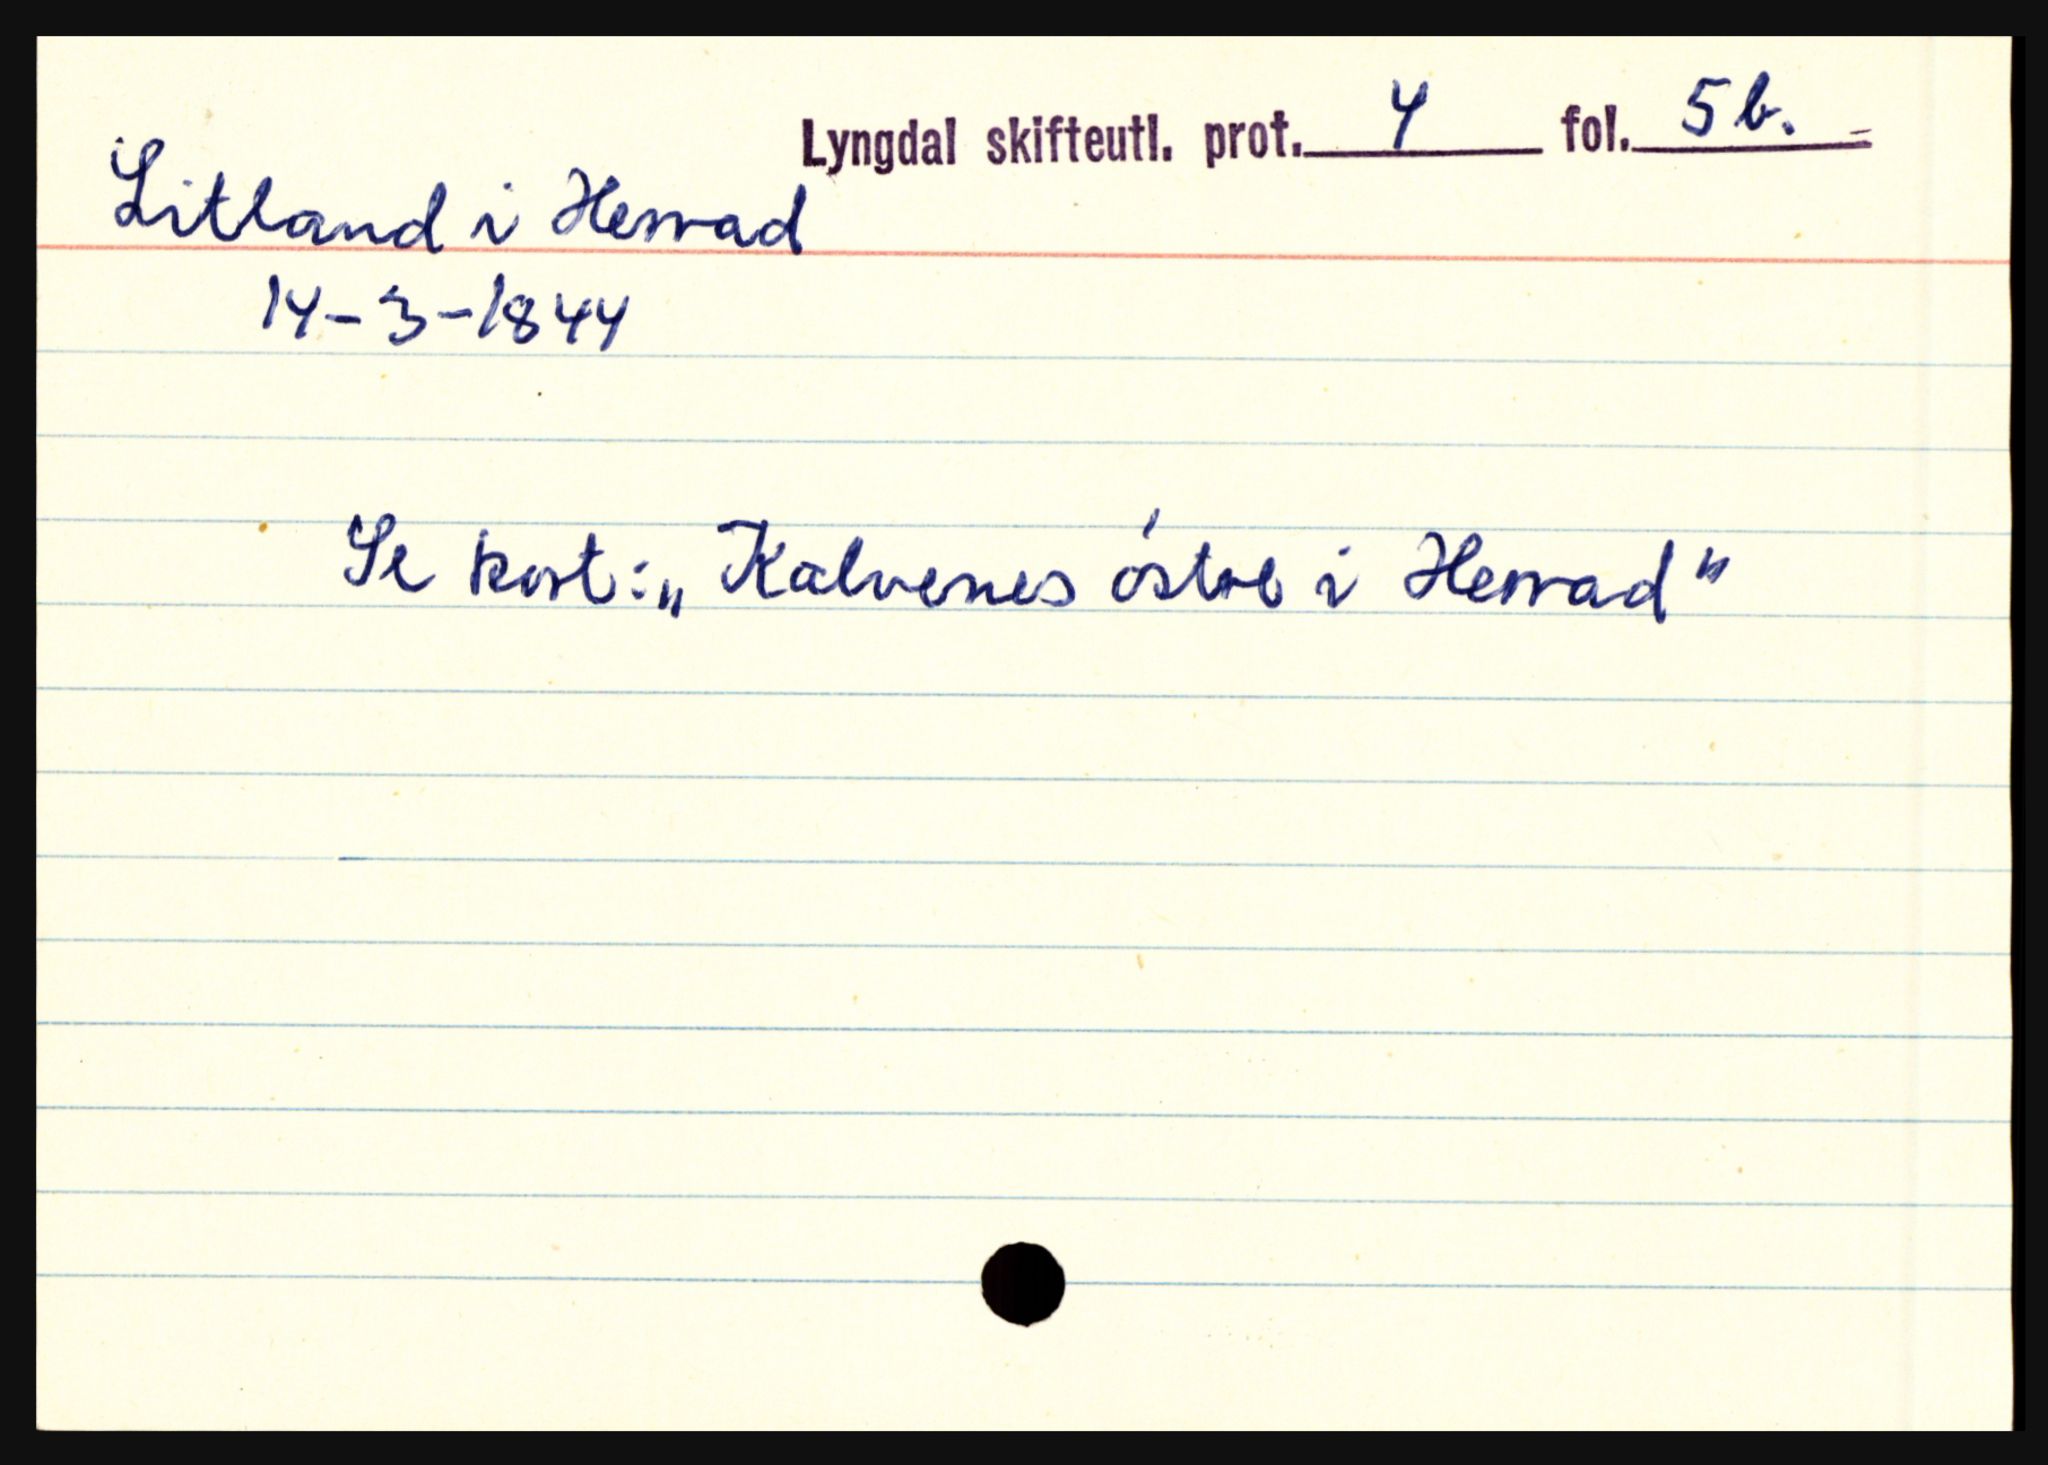 Lyngdal skifteutl. prot. 4 fol. 5b.
Litland i Herrad
14-3-1844
Se kort: „Kalvenes óstre i Herrad"